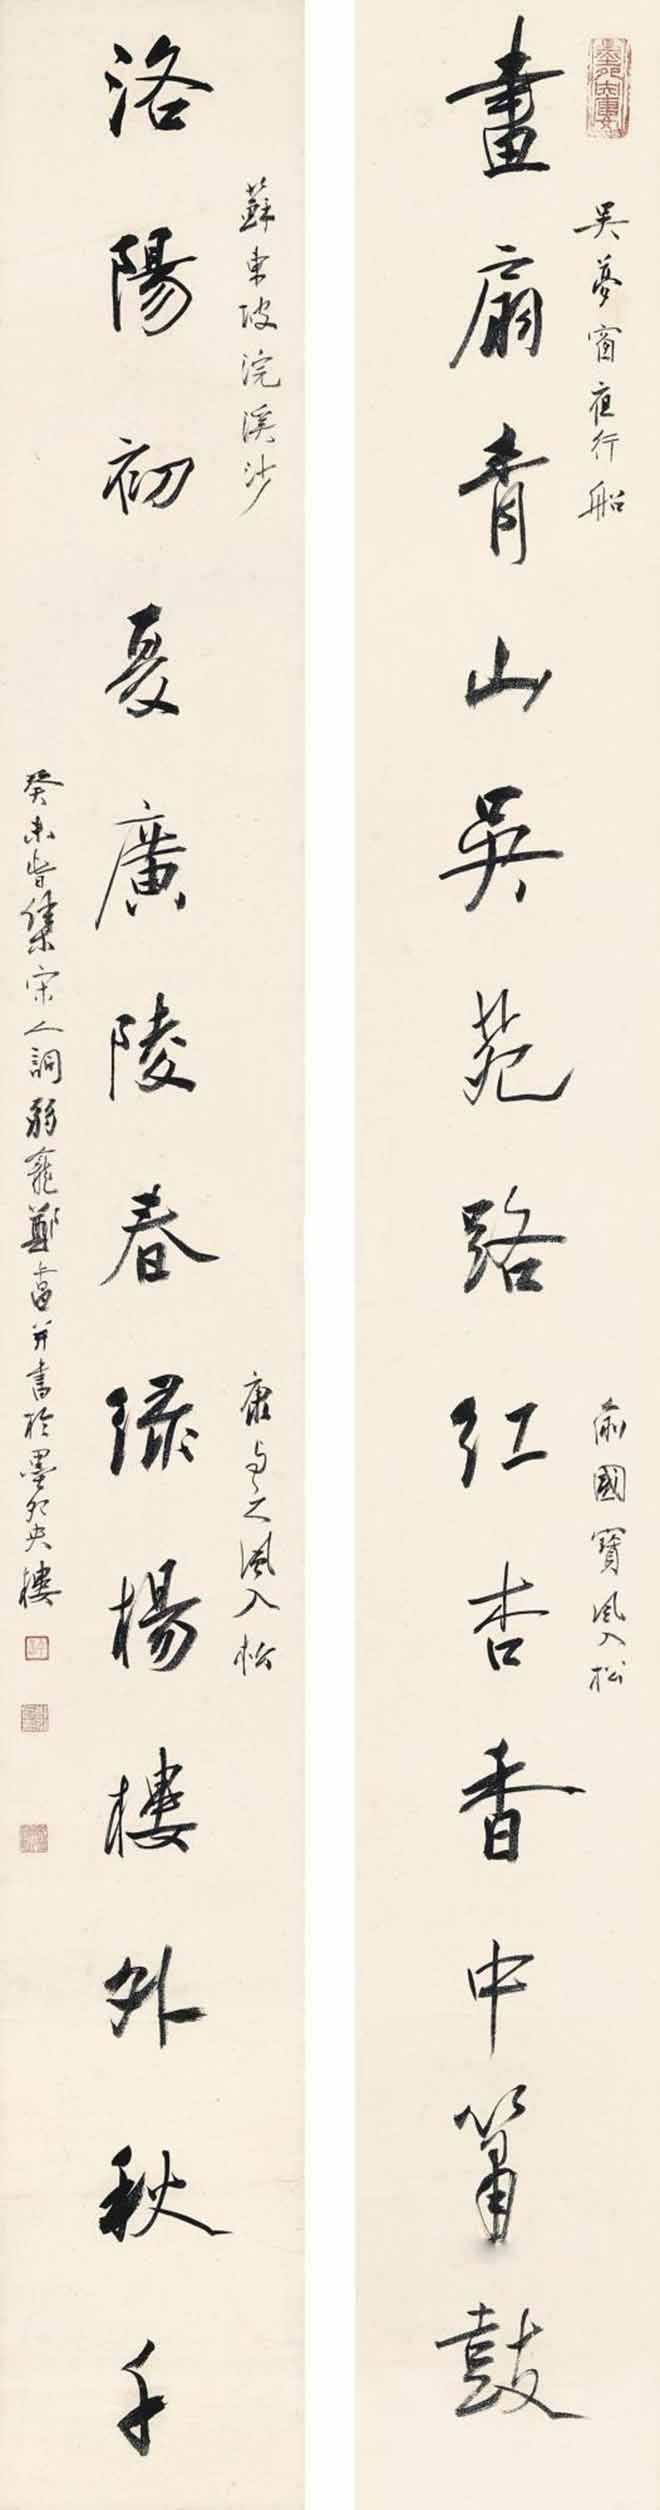 畫扇青山吳苑路紅杏香中簫鼓
吳夢窗夜行船
俞國寶風入松
洛陽初夏廣陵春綠楊樓外秋千
蘇東坡浣溪沙
康与之風入松
癸未集宋人詞弱龕鄭昶并書於墨夗央樓